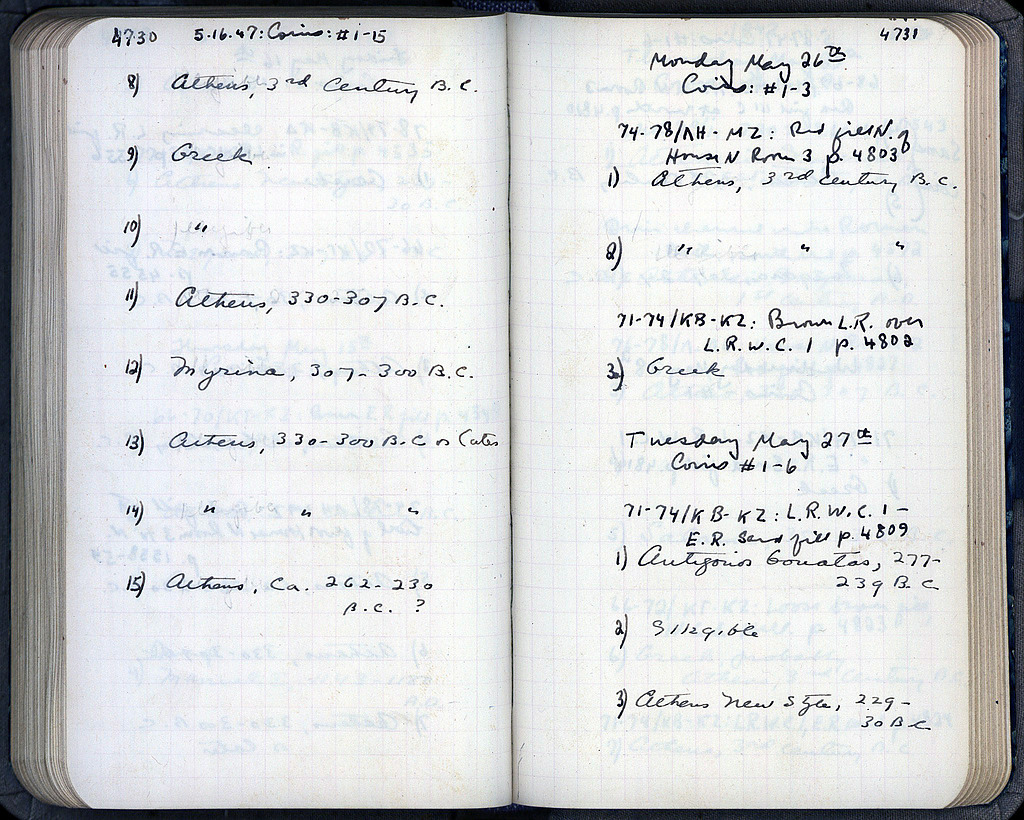 4730 5.16.47: Coins: #1-15
8) Athens, 3rd Century B.C.
9) Greek
10) "
11) Athens, 330-307 B.C.
12) Myrina, 307-300 B.C.
13) Athens, 330-300 B.C. or later
14) " " "
15) Athens, Ca. 262-230
B.C. ?
4731
Monday May 26th
Coins: #1-3
74-78/ΛΗ-ΜΖ: Red fill N. of
House N Room 3 p. 4803
1) Athens, 3rd century B.C.
2) " " "
71-74/ΚΒ-ΚΖ: Brown L.R. over
L.R.W.C. 1 p. 4802
3) Greek
Tuesday May 27th
Coins #1-6
71-74/ΚΒ-ΚΖ: L.R.W.C. 1 -
E.R. Sand fill p. 4809
1) Antigonos Gonatas, 277-
239 B.C.
2) Illegible
3) Athens New Style, 229-
30 B.C.